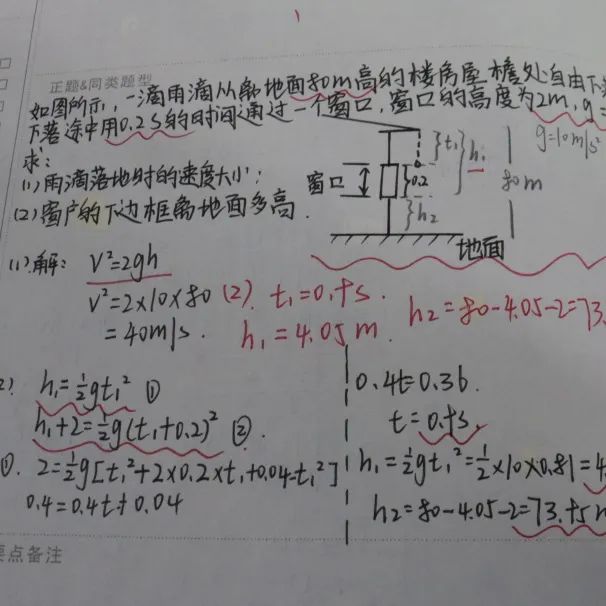 正题&同类题型
如图所示，一滴雨滴从离地面80m高的楼房屋檐处自由下
下落途中用0.2s的时间通过一个窗口，窗口的高度为2m，g=
g=10m/s²
求：
(1)雨滴落地时的速度大小；
(2)窗户的下边框离地面多高．
窗口
t₁
h₁
0.2
80m
h₂
地面
(1).解： V²=2gh
V²=2×10×80
=40m/s．
(2). t₁=0.9s．
h₁=4.05m．
h₂=80-4.05-2=73.
2). h₁=½gt₁² ①
h₁+2=½g(t₁+0.2)² ②．
①. 2=½g[t₁²+2×0.2×t₁+0.04-t₁²]
0.4=0.4t+0.04
0.4t=0.36．
t=0.9s．
h₁=½gt₁²=½×10×0.81=4
h₂=80-4.05-2=73.95m
要点备注